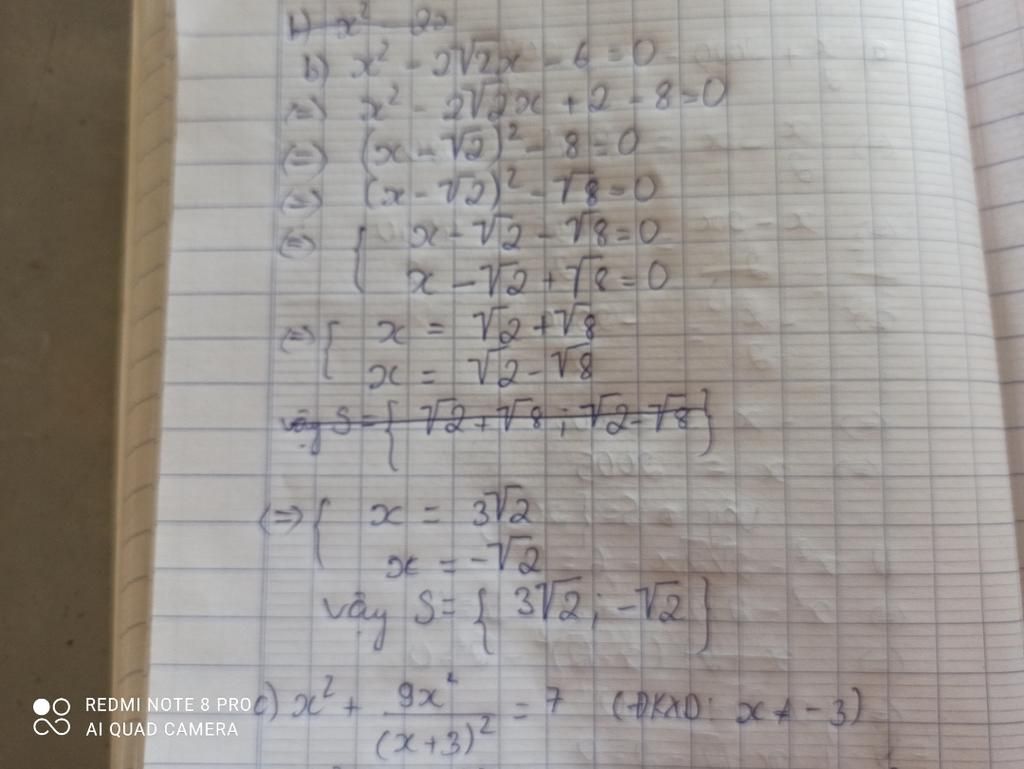 b) x² - 2√
b) x² - 2√2x - 6 = 0
(=) x² - 2√2x + 2 - 8 = 0
(=) (x - √2)² - 8 = 0
(=) (x - √2)² - √8 = 0
(=) { x - √2 - √8 = 0
x - √2 + √8 = 0
(=) { x = √2 + √8
x = √2 - √8
vậy S = { √2 + √8 ; √2 - √8 }
(=) { x = 3√2
x = -√2
vậy S = { 3√2 ; -√2 }
c) x² + 9x²/(x+3)² = 7 (ĐKXĐ: x ≠ -3)
REDMI NOTE 8 PRO
AI QUAD CAMERA